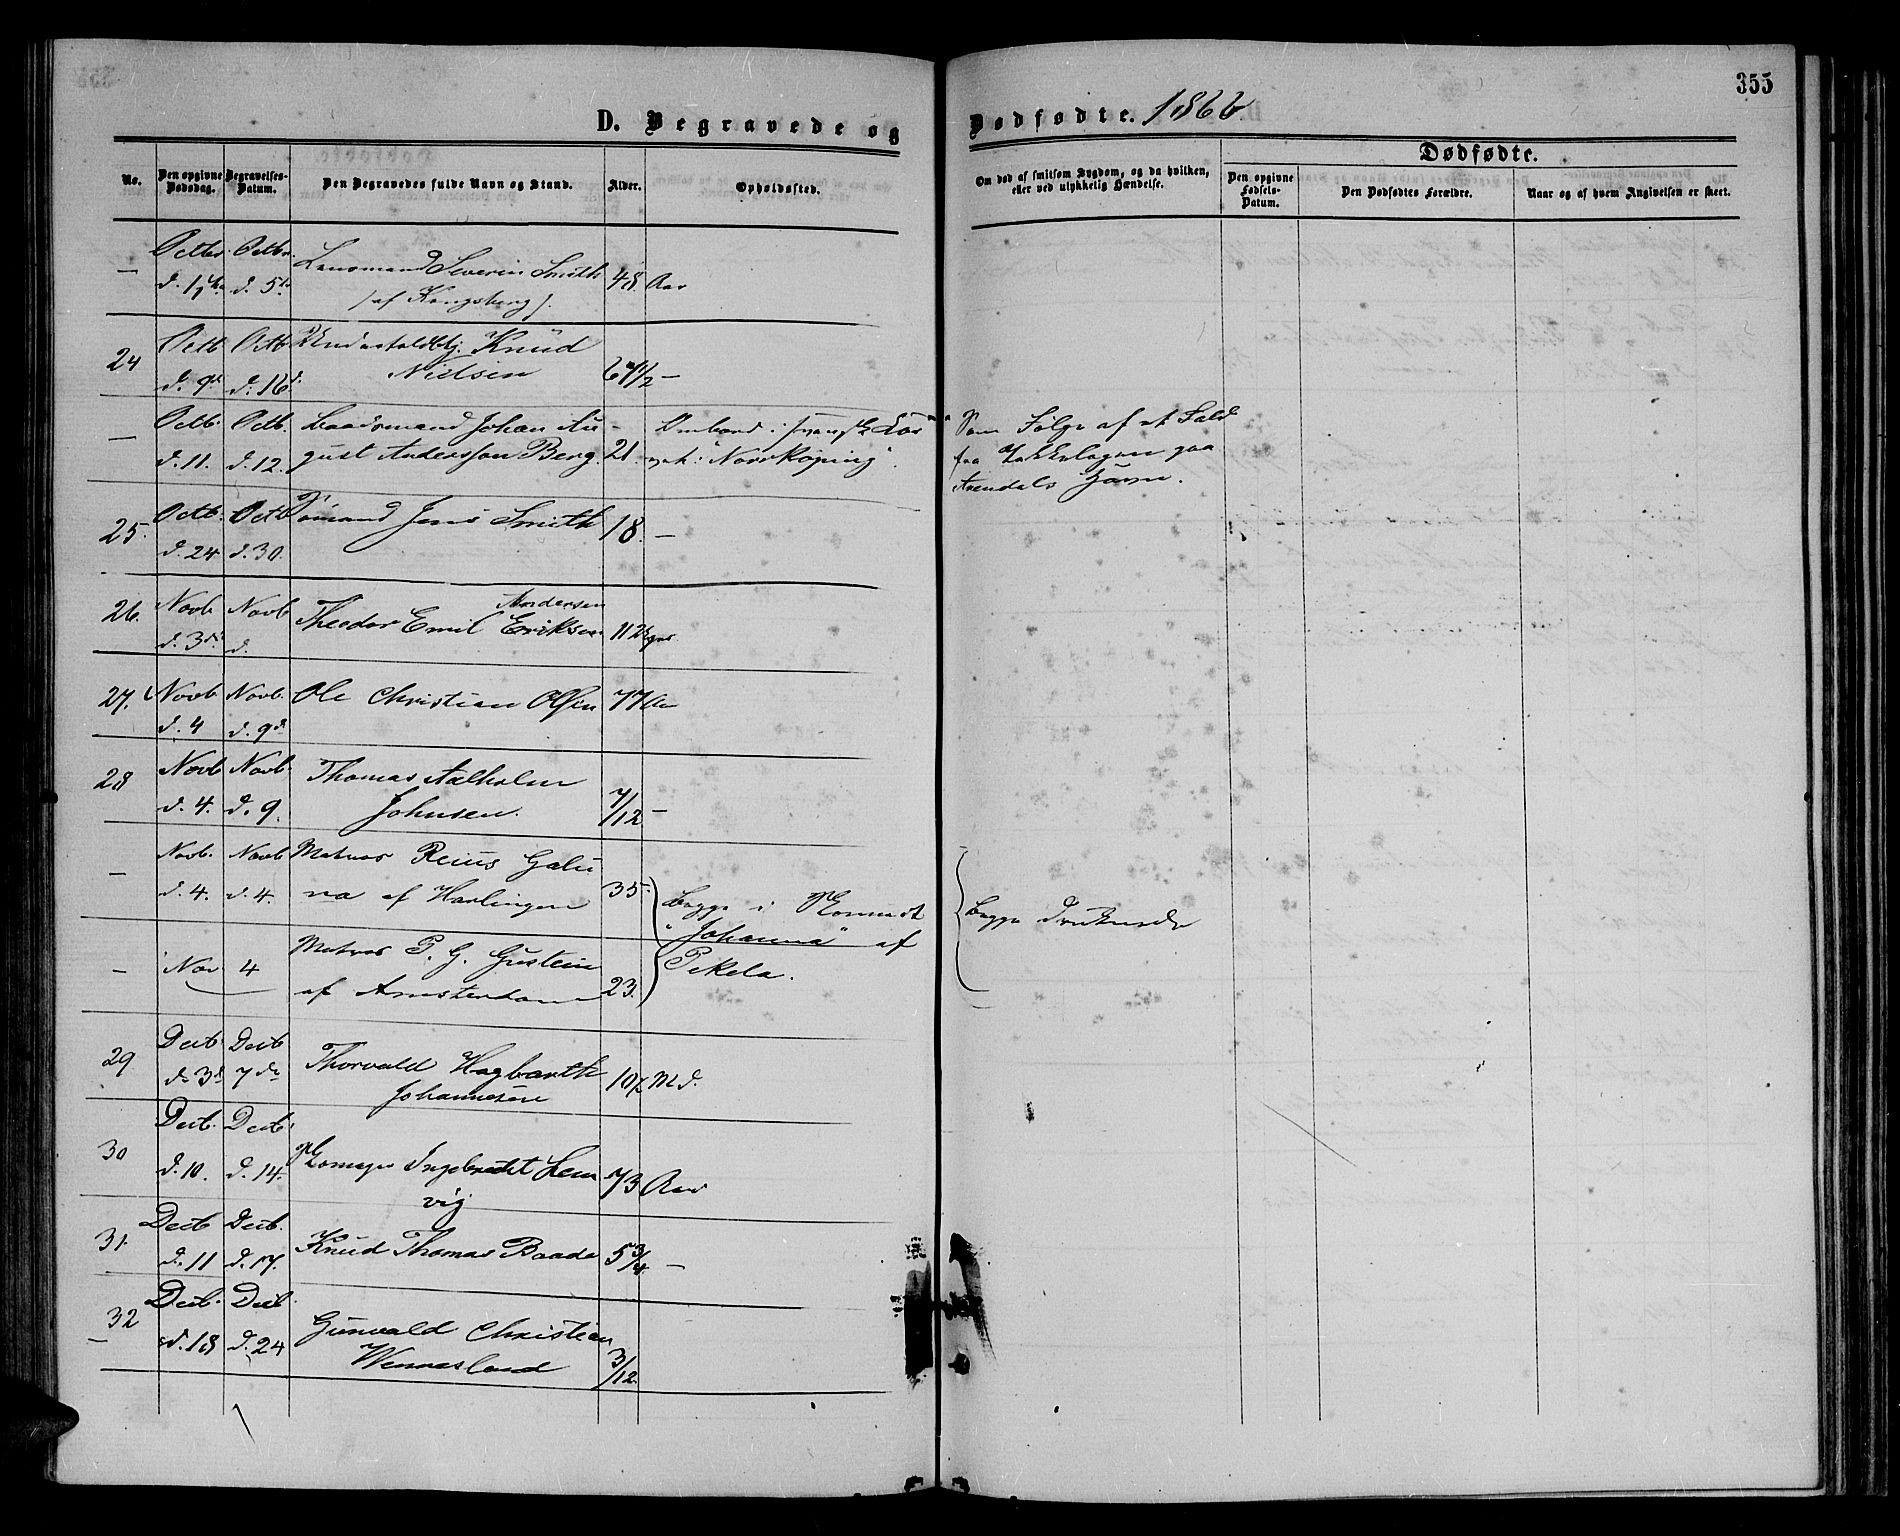 355
D. Begravede og Dødfødte. 1866
No.
Den opgivne Dødsdag.
Begravelses-Datum.
Den Begravedes fulde Navn og Stand.
Alder.
Opholdssted.
Om død af smitsom Sygdom, og da hvilken, eller ved ulykkelig Hændelse.
Dødfødte.
Den opgivne Fødsels-Datum.
Den Dødfødtes Forældre.
Naar og af hvem Angivelsen er skeet.
— Octbr. Octbr. Severin Smith 48 Aar
d. 5te (af Kongsberg).
24 Octb Octb Knud
d. 9de d. 16d. Nielsen 67 1/2 —
— Octb. Octb. Baadsmand Johan Au- Ombord i Som Følge af et Fald
d. 11. d. 12. gust Andersson Berg. 21. "Norrköping". fra paa
Arendals Havn.
25. Octb. Octb Sømand Jens Smith 18. —
d. 24 d. 30.
26. Novb Novb Andersen
d. 3de d. Theodor Emil Eriksen 11 Dage
27. Novb Novb. Ole Christian Olsen 77 Aar
d. 4 d. 9de
28 Novb Novb. Thomas Aalholm
d. 4. d. 9. Johnsen. 7/12 —
— Novb. Novb Matros Reius
d. 4. d. 4. af Harlingen 35 Begge i Begge Druknede
"Johanna" af
— Nov 4 Matros P. G. Pekela.
af Amsterdam 23.
29 Decb Decb Thorvald Hagbarth
d. 3de 7de Johannesen 10 1/2 Md.
30 Decb. Decb. Ingebredt Lem
d. 10. d. 14. vig 73 Aar
31. Decb Decb. Knud Thomas Baade 5 3/4 —
d. 11 d. 17.
32 Decb. Decb Gunvald Christian
d. 18 d. 24 Wennesland 3/12.